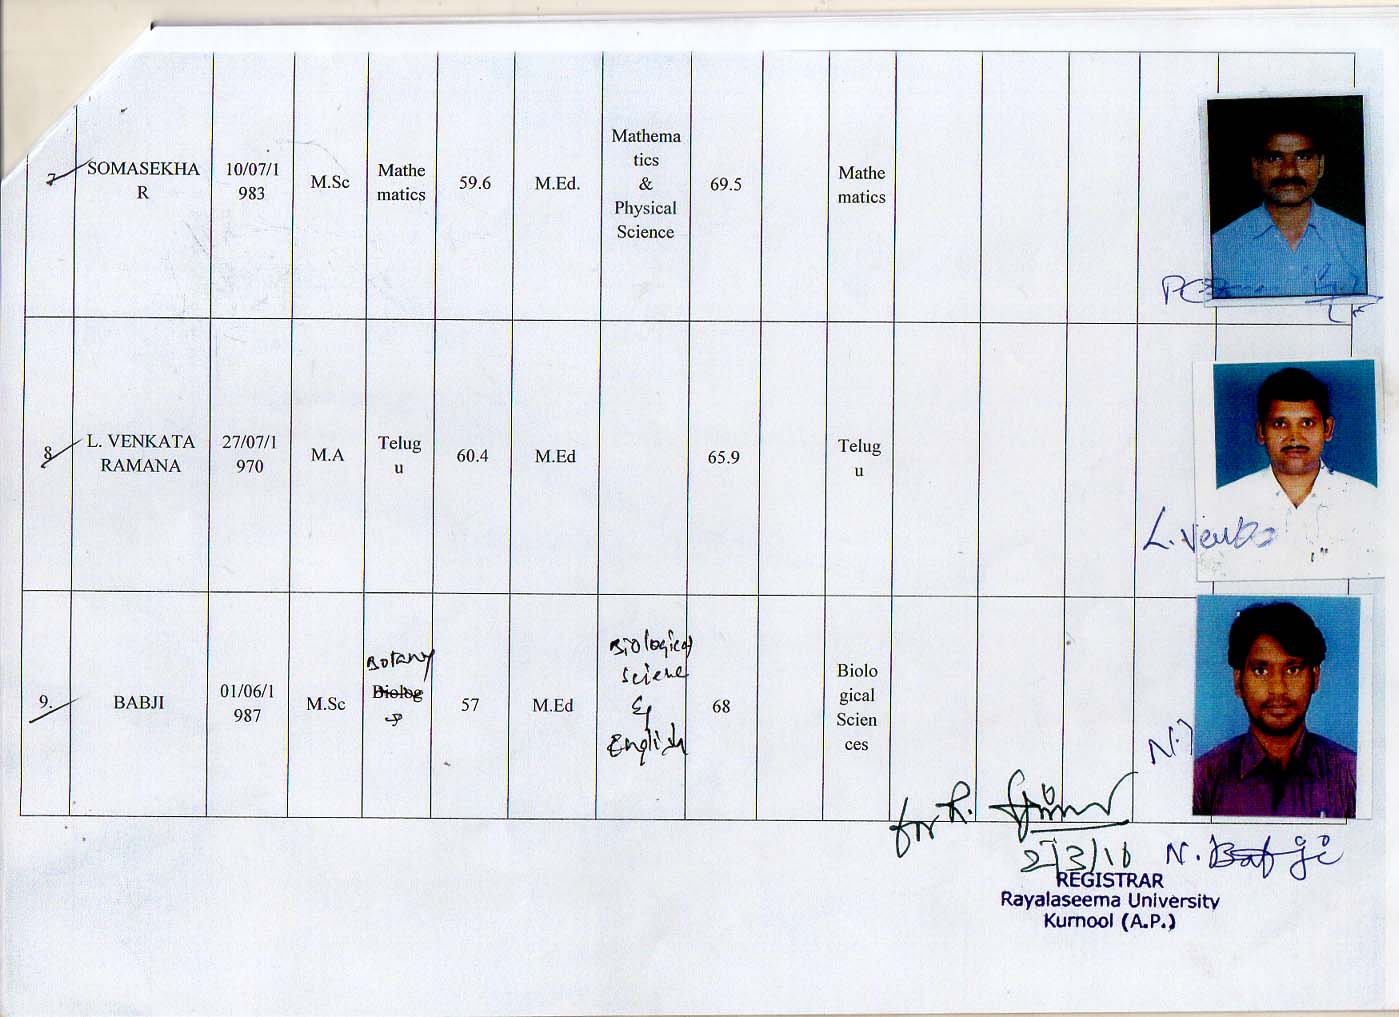 7
SOMASEKHA
R
10/07/1
983
M.Sc
Mathe
matics
59.6
M.Ed.
Mathema
tics
&
Physical
Science
69.5
Mathe
matics
8
L. VENKATA
RAMANA
27/07/1
970
M.A
Telug
u
60.4
M.Ed
65.9
Telug
u
L. Venka
9.
BABJI
01/06/1
987
M.Sc
Botany
Biolog
y
57
M.Ed
Biological
Science
&
English
68
Biolo
gical
Scien
ces
for R.
2/3/16
N. Babji
REGISTRAR
Rayalaseema University
Kurnool (A.P.)